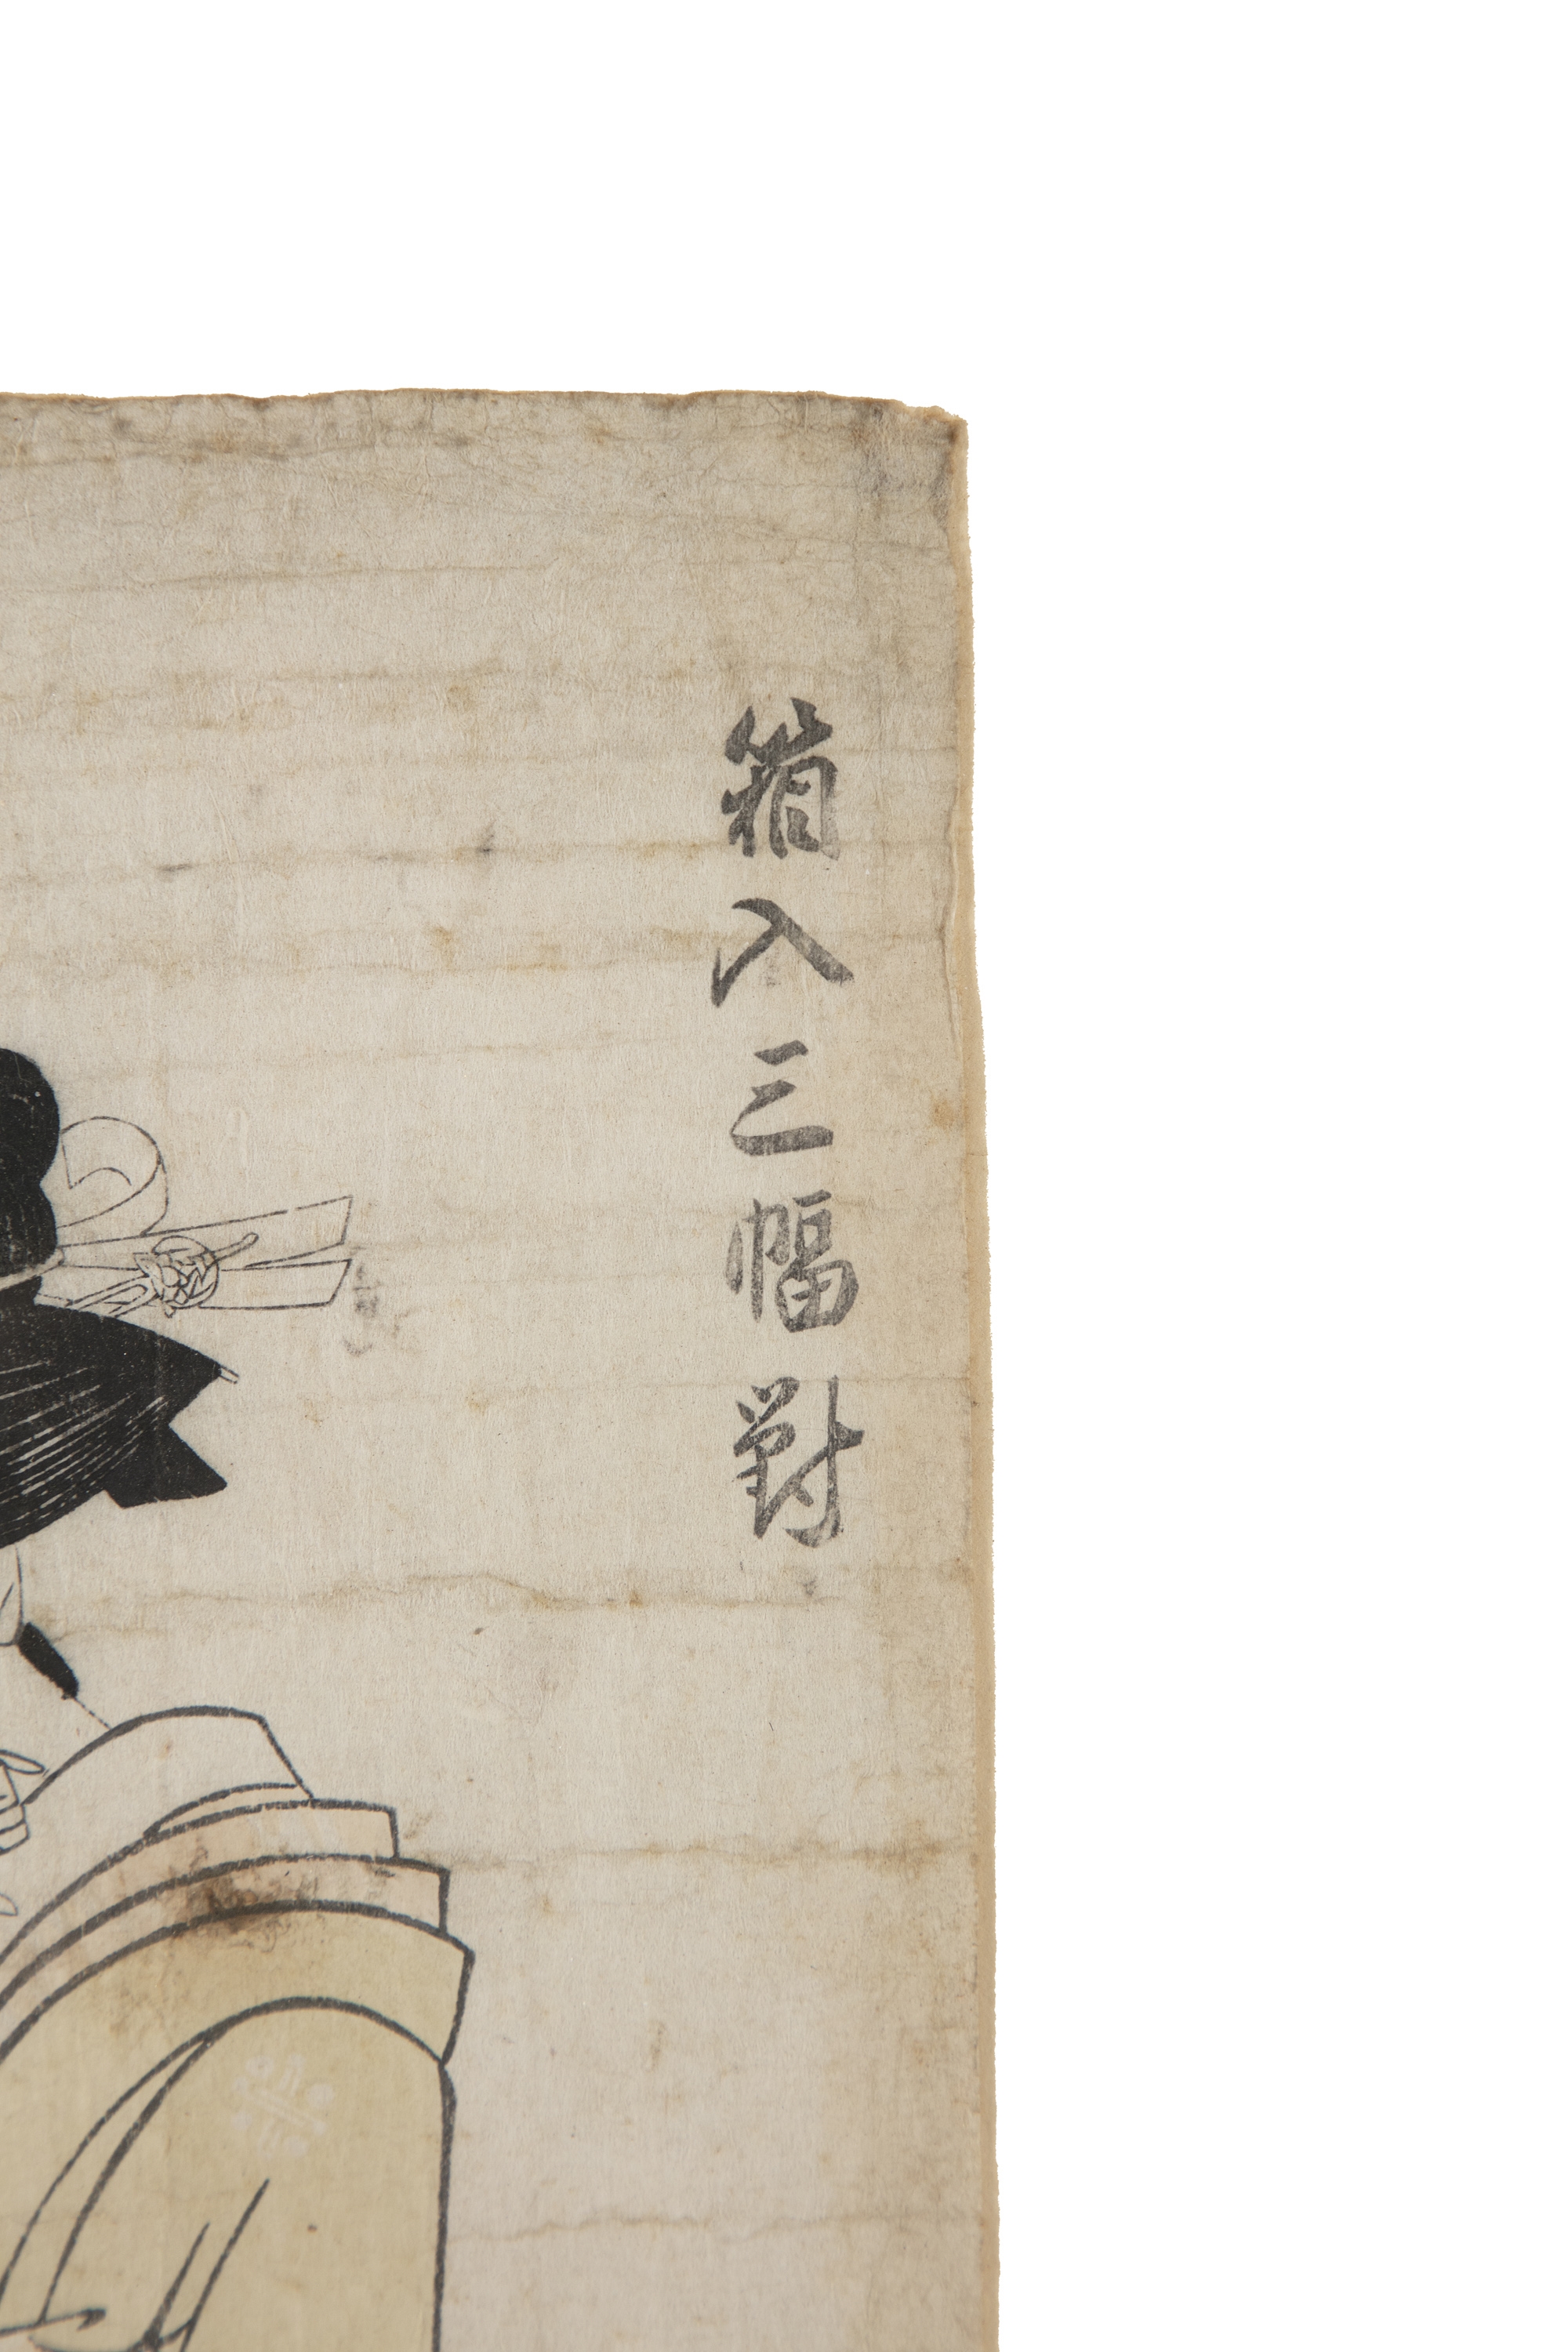 箱入三幅對